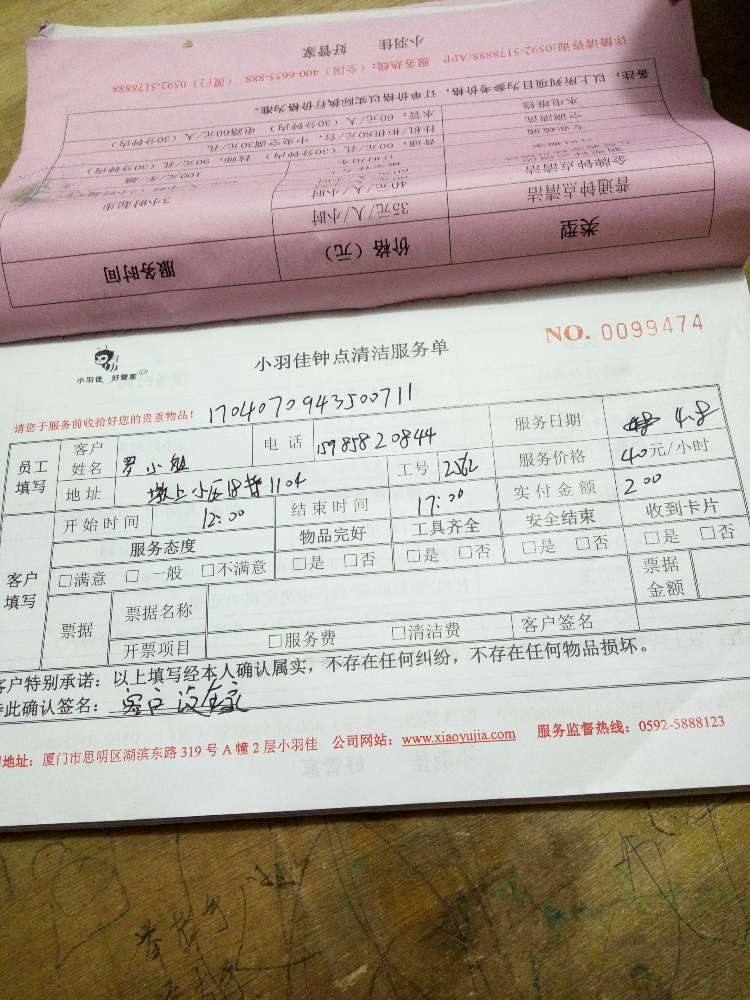 小羽佳 好管家
详情请咨询:0592-5178888/APP 服务热线:(全国)400-6635-888 (厦门)0592-5178888
备注:以上所列项目为参考价格,订单价格以实际执行价格为准。
水电维修 水管:60元/人(30分钟内) 电路60元/人(30分钟内)
空调清洗 挂机、柜机80元/台,中央空调30元/孔
普通:60元/孔(30分钟内) 技师:90元/孔(30分钟内)
金牌钟点清洁 40元/人/小时
普通钟点清洁 35元/人/小时 3小时起步
类型 价格(元) 服务时间
小羽佳 好管家
小羽佳钟点清洁服务单
NO. 0099474
请您于服务前收拾好您的贵重物品!
1704070943500711
员工填写 客户姓名 罗小姐 电话 15985820844 服务日期 4.8
地址 墩上小区18梯1104 工号 2562 服务价格 40元/小时
客户填写 开始时间 12:00 结束时间 17:00 实付金额 200
服务态度 物品完好 工具齐全 安全结束 收到卡片
□满意 □一般 □不满意 □是 □否 □是 □否 □是 □否 □是 □否
票据 票据名称 票据金额
开票项目 □服务费 □清洁费 客户签名
客户特别承诺:以上填写经本人确认属实,不存在任何纠纷,不存在任何物品损坏。
此确认签名: 客户没在家
地址:厦门市思明区湖滨东路319号A幢2层小羽佳 公司网站:www.xiaoyujia.com 服务监督热线:0592-5888123